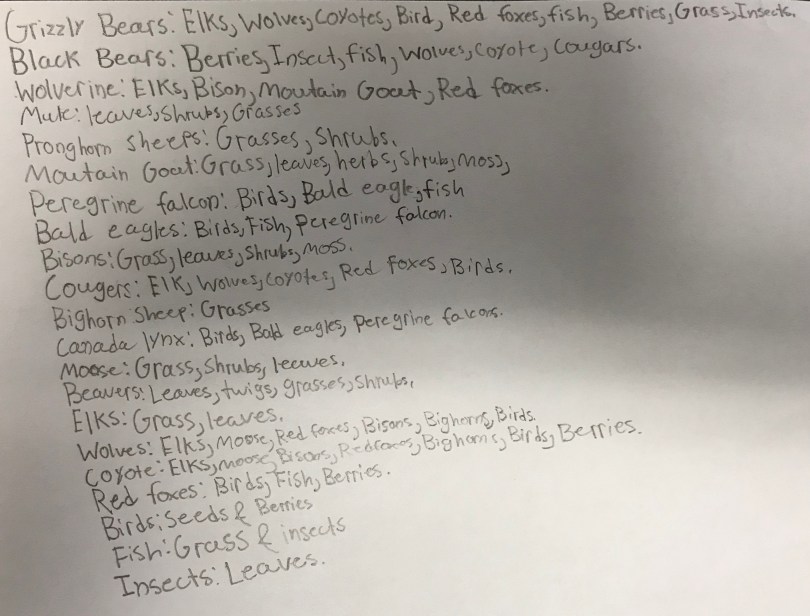 Grizzly Bears: Elks, Wolves, Coyotes, Bird, Red foxes, fish, Berries, Grass, Insects.
Black Bears: Berries, Insect, fish, Wolves, Coyote, Cougars.
Wolverine: Elks, Bison, Moutain Goat, Red foxes.
Mule: leaves, Shrubs, Grasses
Pronghorn Sheeps: Grasses, Shrubs.
Moutain Goat: Grass, leaves, herbs, Shrubs, Moss,
Peregrine falcon: Birds, Bald eagle, fish
Bald eagles: Birds, Fish, Peregrine falcon.
Bisons: Grass, leaves, Shrubs, Moss.
Cougers: Elk, Wolves, Coyotes, Red foxes, Birds.
Bighorn Sheep: Grasses
Canada lynx: Birds, Bald eagles, Peregrine falcons.
Moose: Grass, Shrubs, leeves.
Beavers: Leaves, twigs, grasses, Shrubs.
Elks: Grass, leaves.
Wolves: Elks, Moose, Red foxes, Bisons, Bighorns, Birds.
Coyote: Elks, moose, Bisons, Redfoxes, Bighorns, Birds, Berries.
Red foxes: Birds, Fish, Berries.
Birds: Seeds & Berries
Fish: Grass & insects
Insects: Leaves.